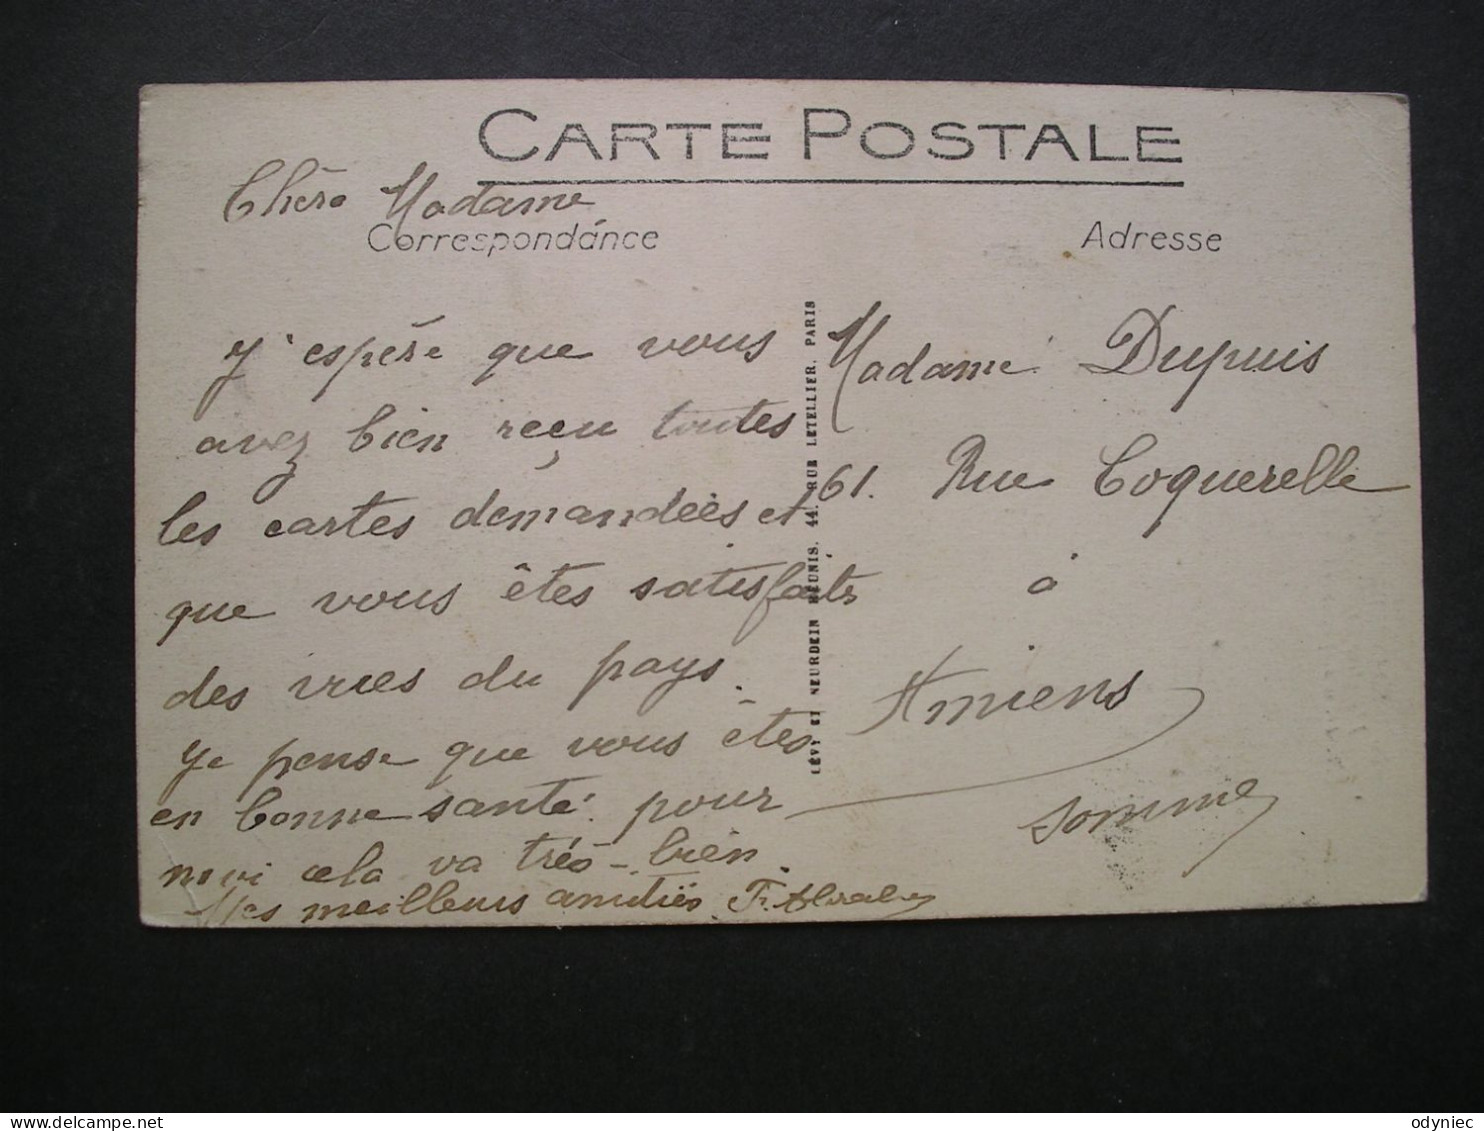 CARTE POSTALE
Chère Madame
Correspondance
J'espère que vous
avez bien reçu toutes
les cartes demandées et
que vous êtes satisfaits
des vues du pays.
Je pense que vous êtes
en bonne santé. pour
moi cela va très-bien
Mes meilleurs amitiés
Adresse
Madame Dupuis
61. Rue Coquerelle
à
Amiens
Somme
LÉVY ET NEURDEIN RÉUNIS. 44. RUE LETELLIER. PARIS
odyniec